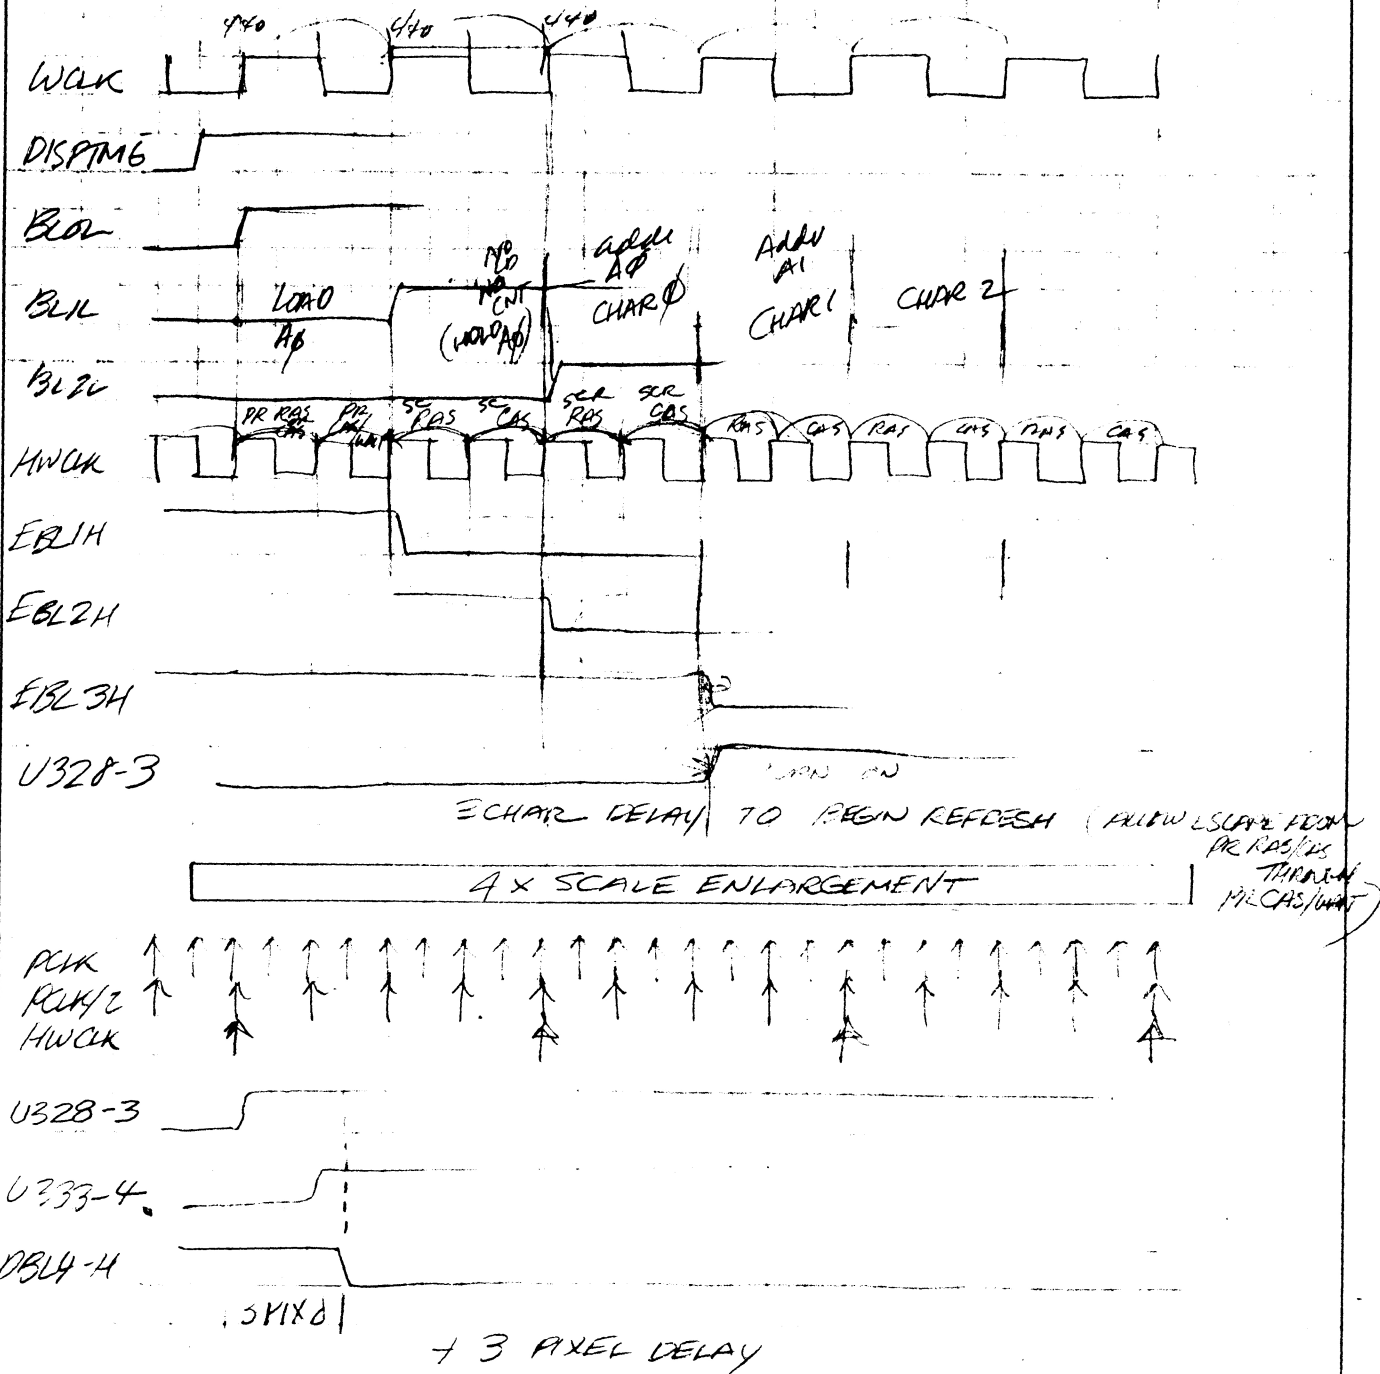 440 440 440
WCLK
DISPTMG
BL0L
BL1L LOAD A∅ NO CNT (HOLD A∅) addr A∅ CHAR∅ Addr A1 CHAR1 CHAR 2
BL2L
PR RAS CAS PR CAS/WAIT SC RAS SC CAS SCR RAS SCR CAS RAS CAS RAS CAS RAS CAS
HWCLK
EBL1H
EBL2H
EBL3H
U328-3 TURN ON
3 CHAR DELAY TO BEGIN REFRESH (ALLOW FROM
PR RAS/CAS
THROUGH
PR CAS/WAIT)
4 X SCALE ENLARGEMENT
PCLK
PCLK/2
HWCLK
U328-3
U333-4
DBL4-H
+ 3 PIXEL DELAY